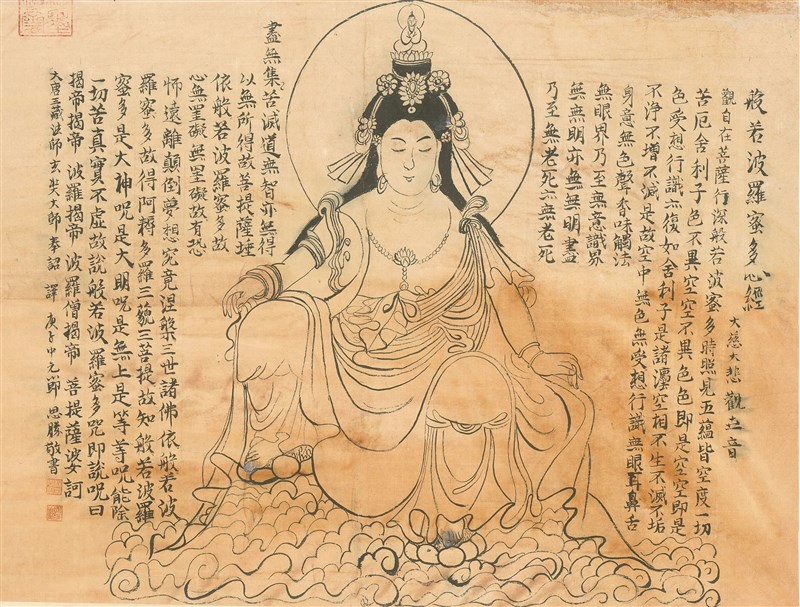 般若波羅蜜多心經
大慈大悲觀世音
觀自在菩薩行深般若波蜜多時照見五蘊皆空度一切
苦厄舍利子色不異空空不異色色即是空空即是
色受想行識亦復如舍利子是諸灋空相不生不滅不垢
不淨不增不減是故空中無色無受想行識無眼耳鼻舌
身意無色聲香味觸法
無眼界乃至無意識界
無無明亦無無明盡
乃至無老死亦無老死
盡無集苦滅道無智亦無得
以無所得故菩提薩埵
依般若波羅蜜多故
心無罣礙無罣礙故有恐
怖遠離顛倒夢想究竟涅槃三世諸佛依般若波
羅蜜多故得阿耨多羅三藐三菩提故知般若波羅
蜜多是大神咒是大明咒是無上是等等咒能除
一切苦真實不虛故說般若波羅蜜多咒即說咒曰
揭帝揭帝 波羅揭帝 波羅僧揭帝 菩提薩婆訶
大唐三藏法師玄奘大師奉詔 譯 庚子中元節 思勝敬書